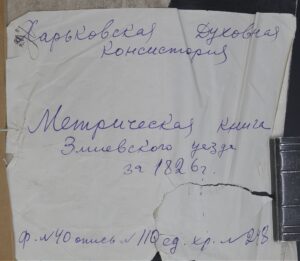 Харьковская Духовная
Консистория
Метрическая книга
Змиевского уезда
за 1826 г.
ф. №40 опись №110 ед. хр. №